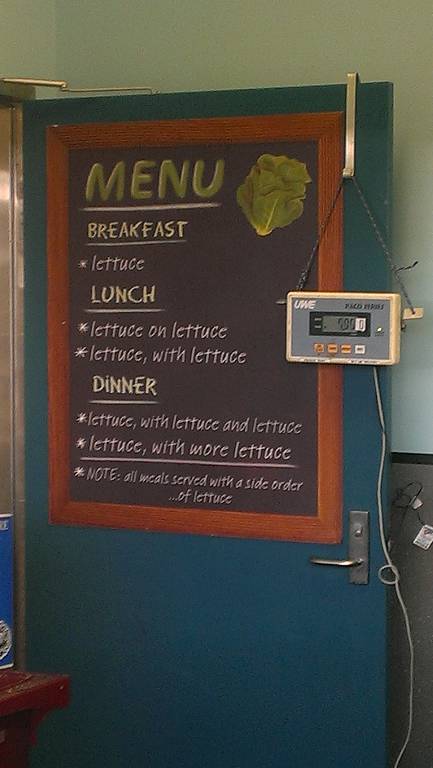 MENU
BREAKFAST
* lettuce
LUNCH
* lettuce on lettuce
* lettuce, with lettuce
DINNER
* lettuce, with lettuce and lettuce
* lettuce, with more lettuce
* NOTE: all meals served with a side order
...of lettuce
UWE